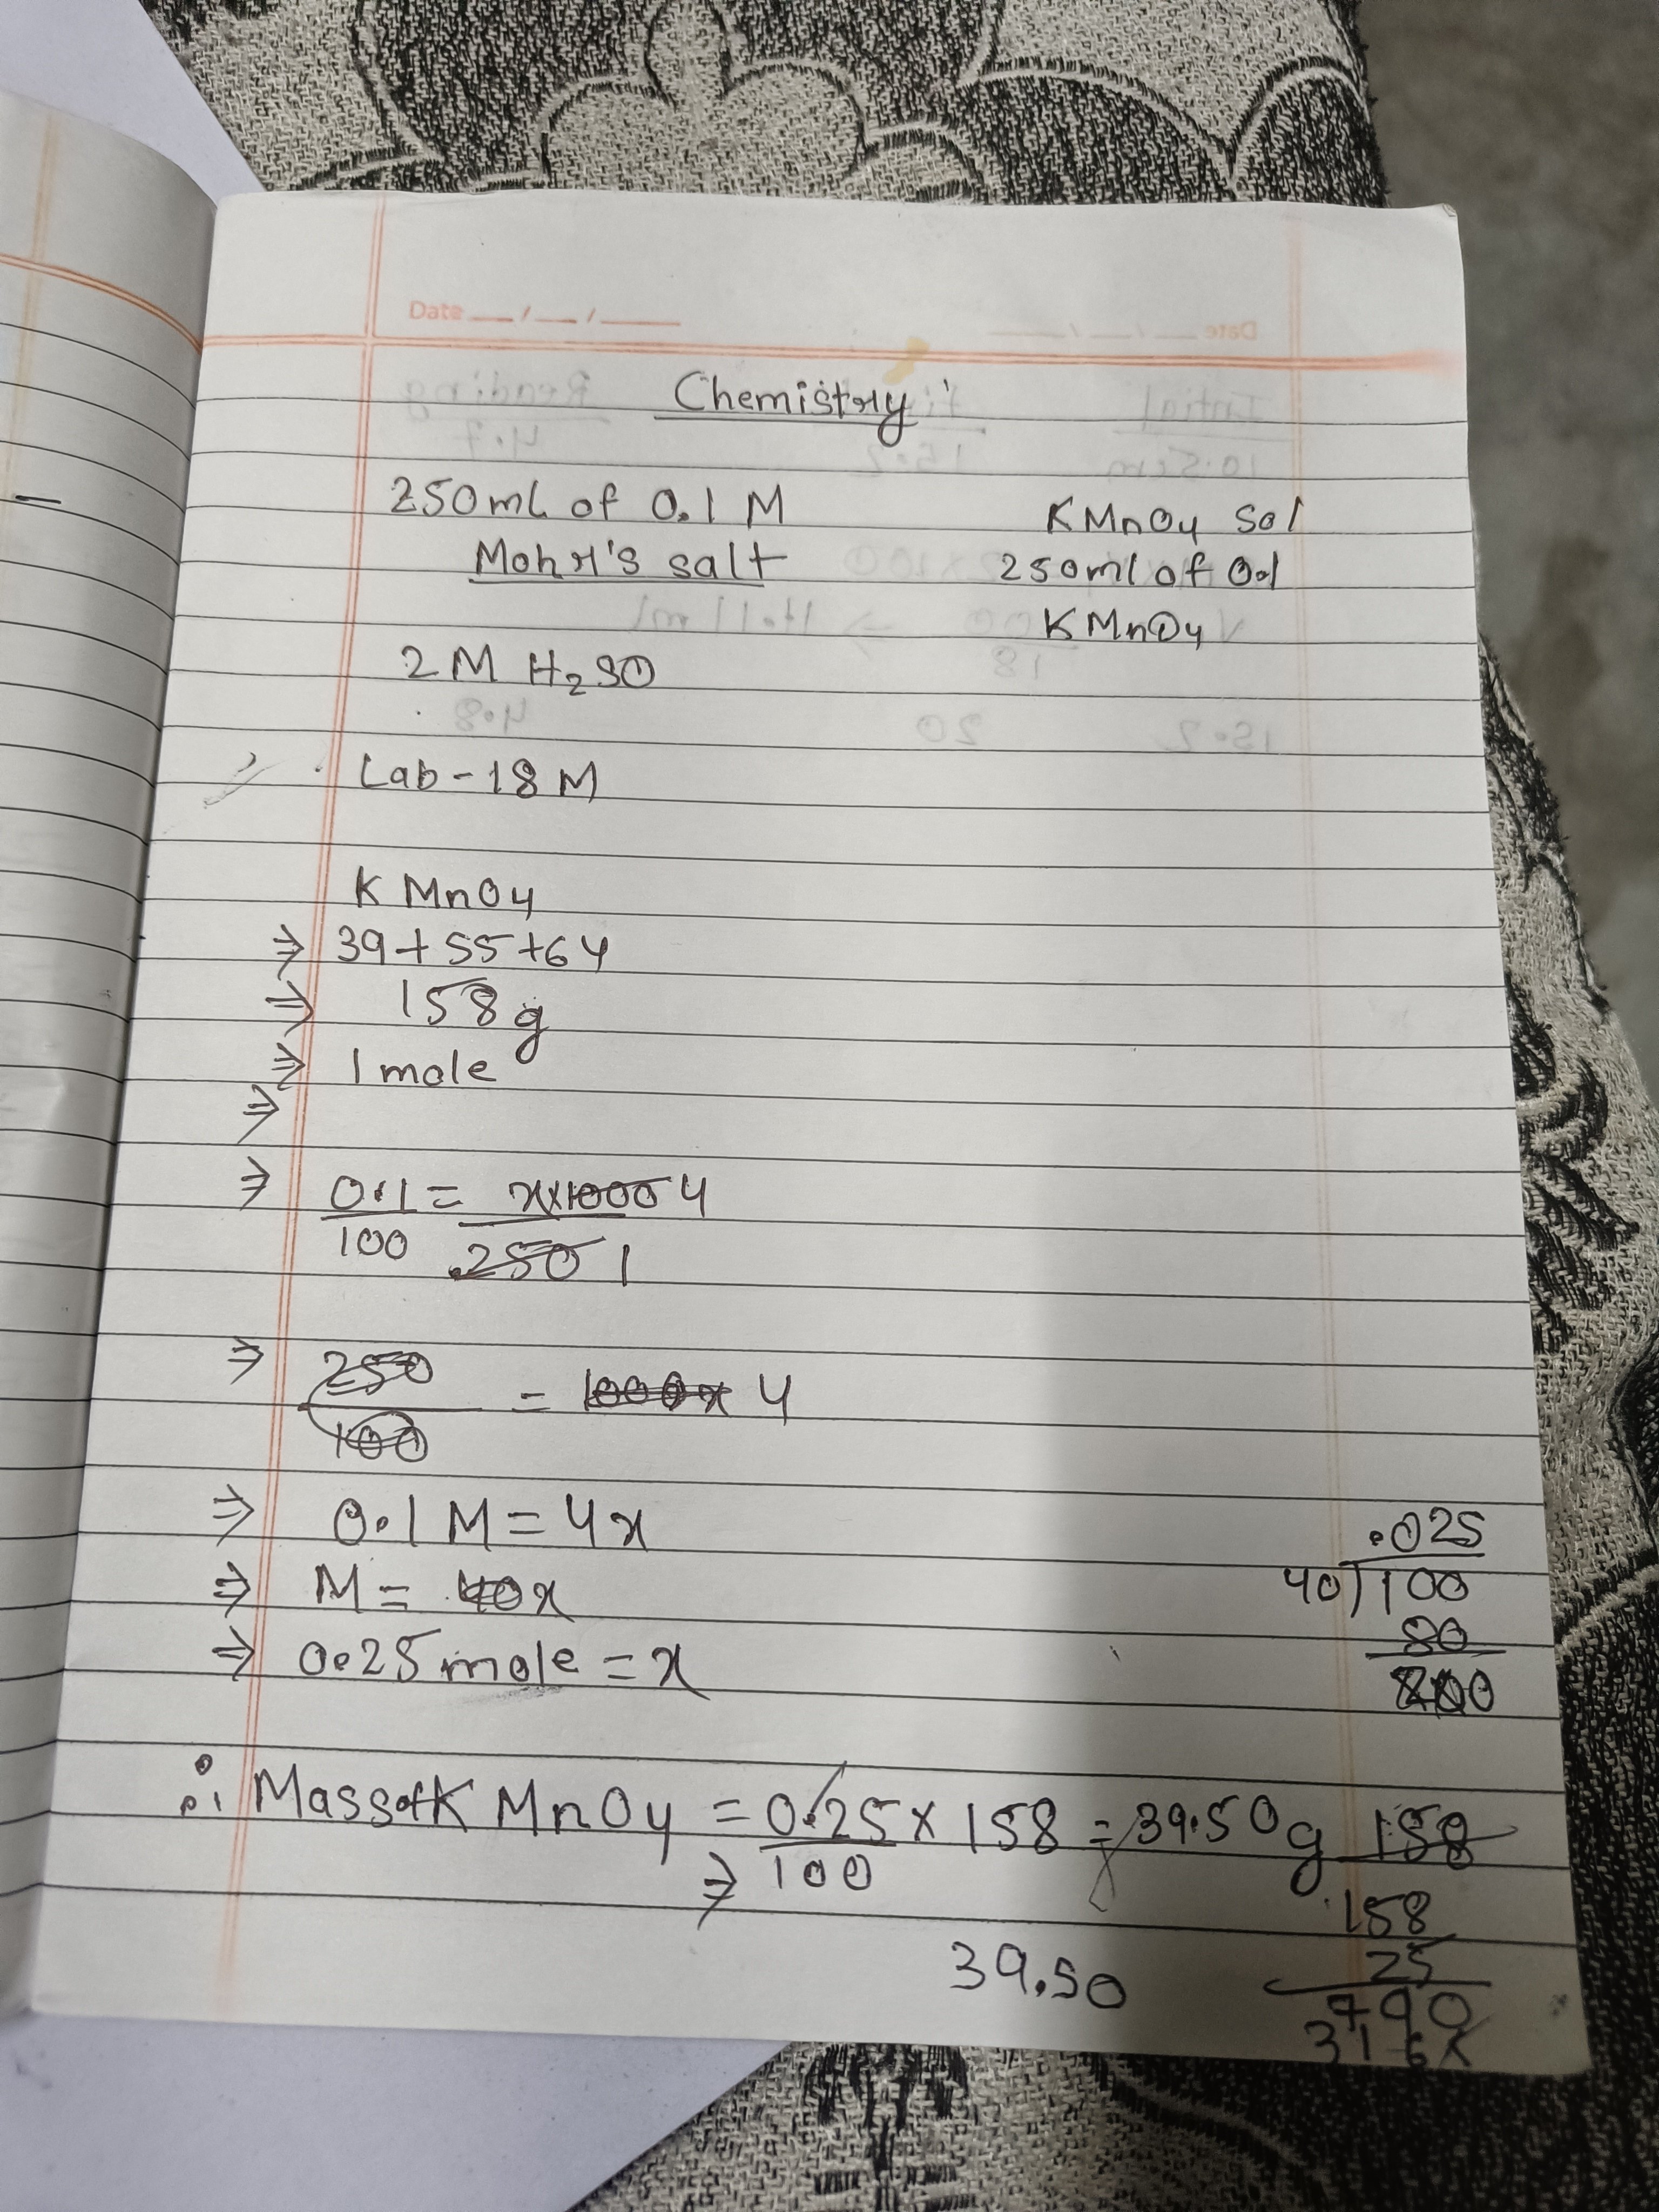 Date __/__/____
Chemistry
250ml of 0.1 M
Mohr's salt
KMnO4 Sol
250ml of 0.1
KMnO4
2 M H2SO
Lab - 18 M
KMnO4
⇒ 39 + 55 + 64
⇒ 158 g
⇒ 1 mole
⇒
⇒ 0.1 = x×1000 4
100 250 1
⇒ 250 = 1000x 4
100
⇒ 0.1 M = 4x
⇒ M = 40x
⇒ 0.25 mole = x
.025
40)100
80
200
∴ Mass of KMnO4 = 0.25 × 158 = 39.50 g 158
⇒ 100
39.50
158
25
790
316x